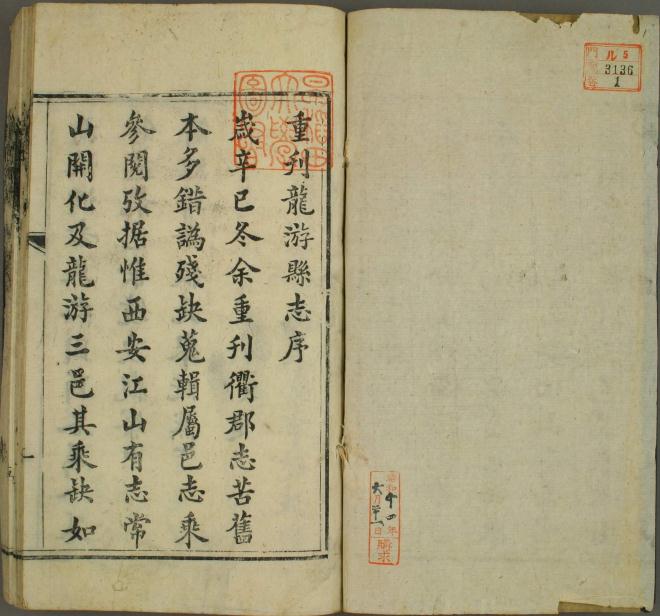 重刋龍游縣志序
歲辛巳冬余重刋衢郡志苦舊
本多錯譌殘缺蒐輯屬邑志乘
參閱攷据惟西安江山有志常
山開化及龍游三邑其乘缺如
ル5
3136
1
昭和十四年
六月廿一日
購求